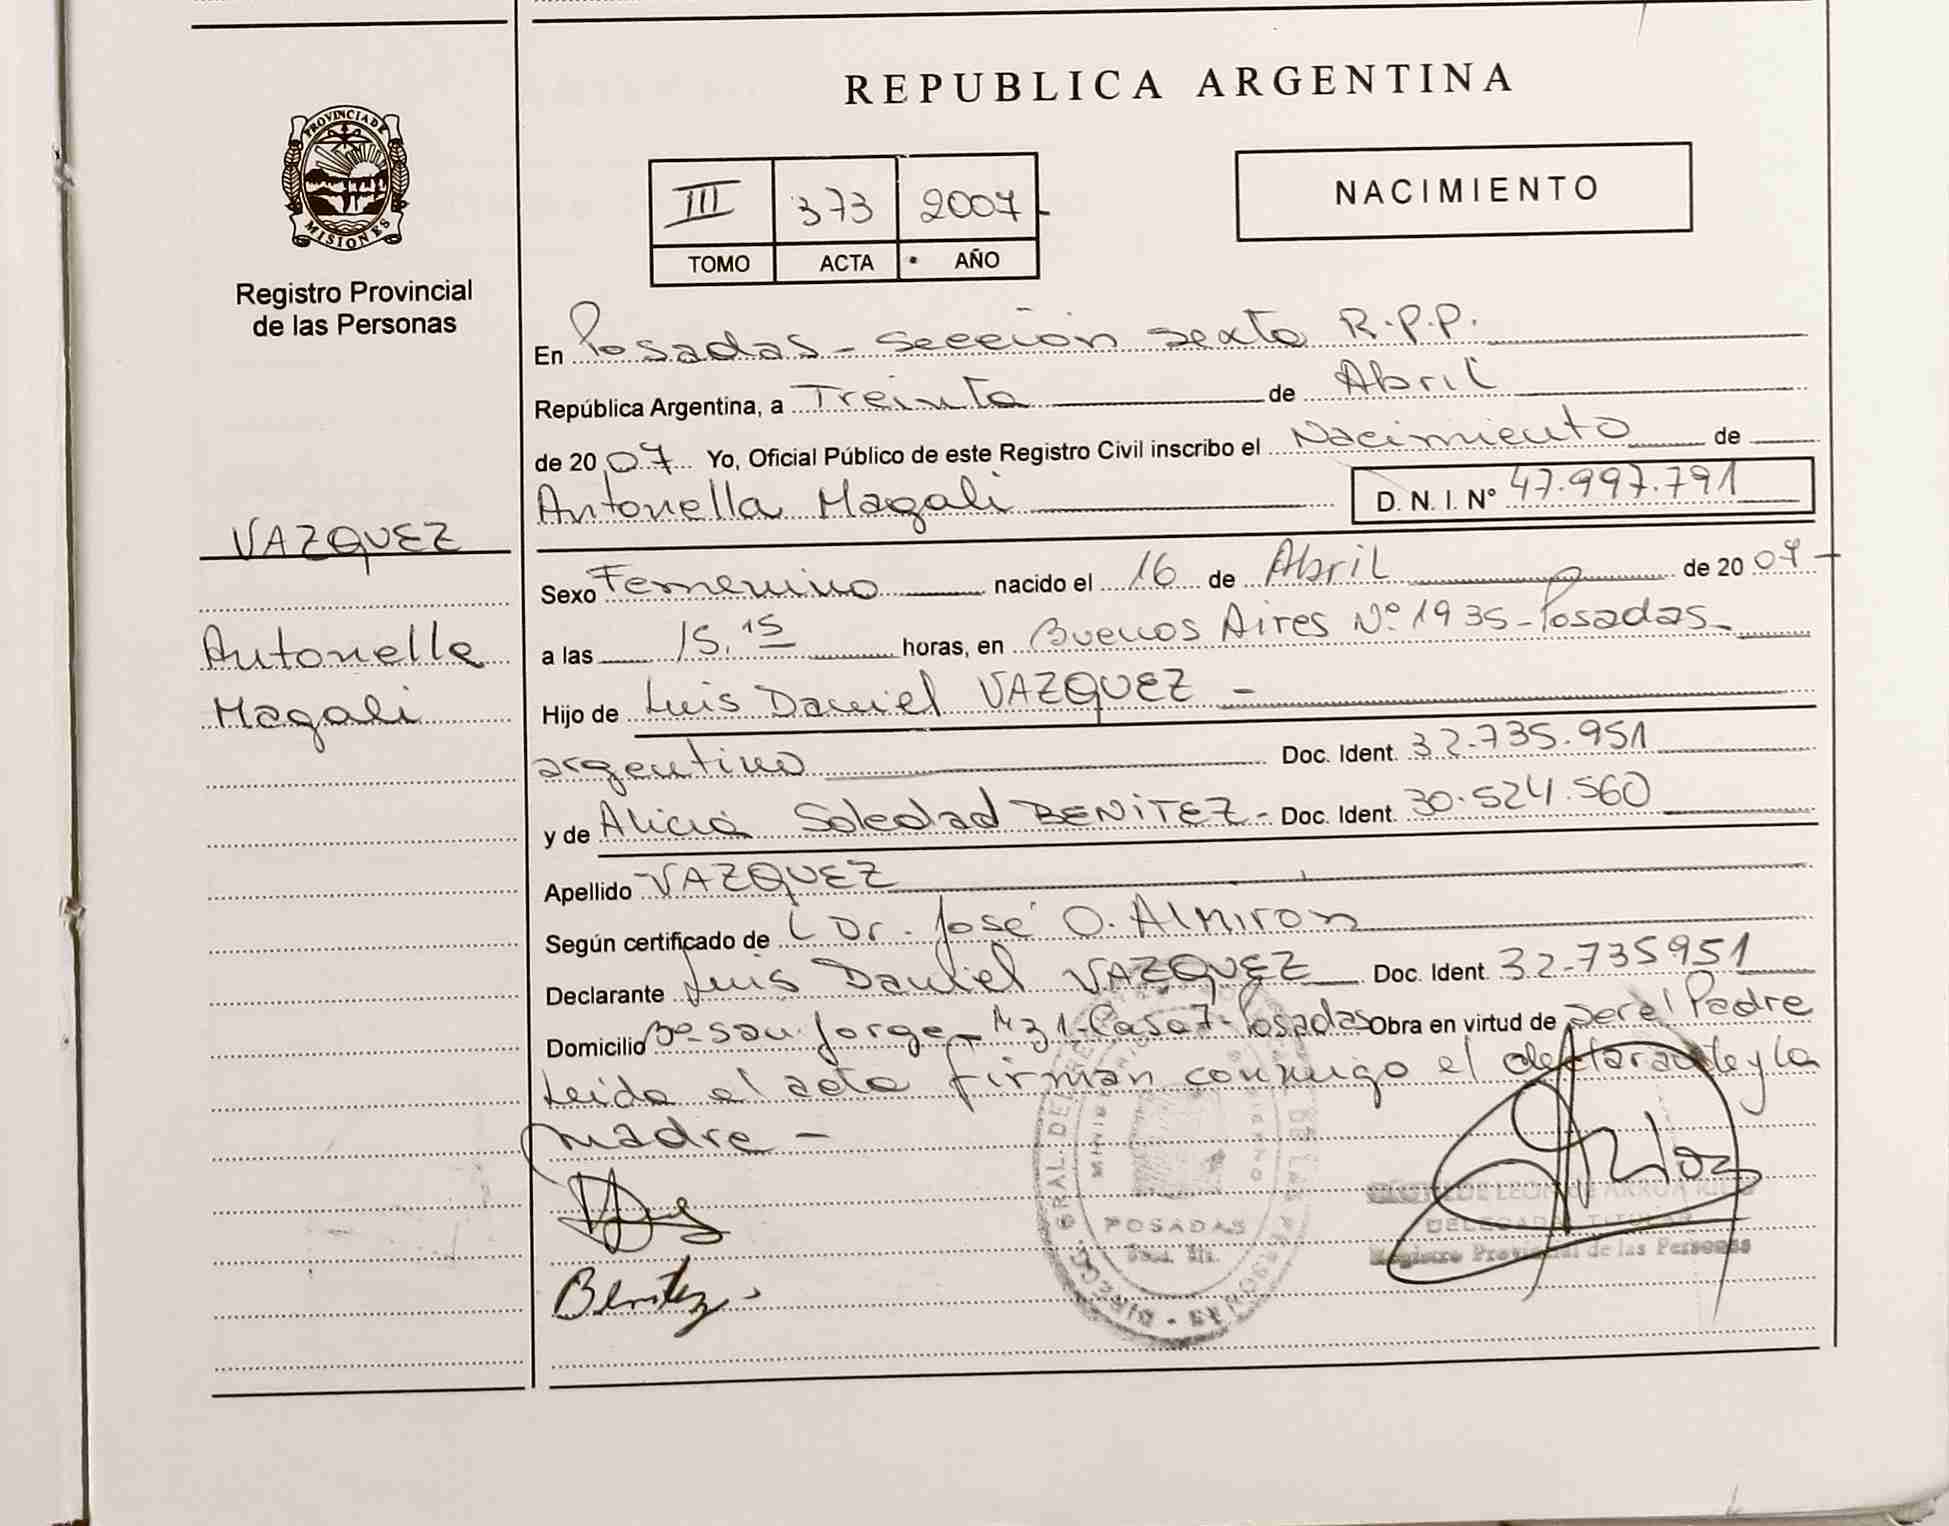 REPUBLICA ARGENTINA
PROVINCIA DE MISIONES
Registro Provincial
de las Personas
III 373 2007
TOMO ACTA AÑO
NACIMIENTO
En Posadas - Sección sexta R.P.P.
República Argentina, a Treinta de Abril
de 2007 Yo, Oficial Público de este Registro Civil inscribo el Nacimiento de
Antonella Magali D. N. I. N° 47.997.791
VAZQUEZ
Antonella
Magali
Sexo Femenino nacido el 16 de Abril de 2007-
a las 15.15 horas, en Buenos Aires Nº 1935-Posadas-
Hijo de Luis Daniel VAZQUEZ -
argentino Doc. Ident. 32.735.951
y de Alicia Soledad BENITEZ- Doc. Ident. 30.524.560
Apellido VAZQUEZ
Según certificado de Dr. José O. Almiron
Declarante Luis Daniel VAZQUEZ Doc. Ident. 32.735951
Domicilio Bº San Jorge - Mz 1-Casa 7-Posadas Obra en virtud de ser el Padre
Leida el acta firman conmigo el declarante y la
madre -
Benitez.
POSADAS
DELEGADA TITULAR
Registro Provincial de las Personas